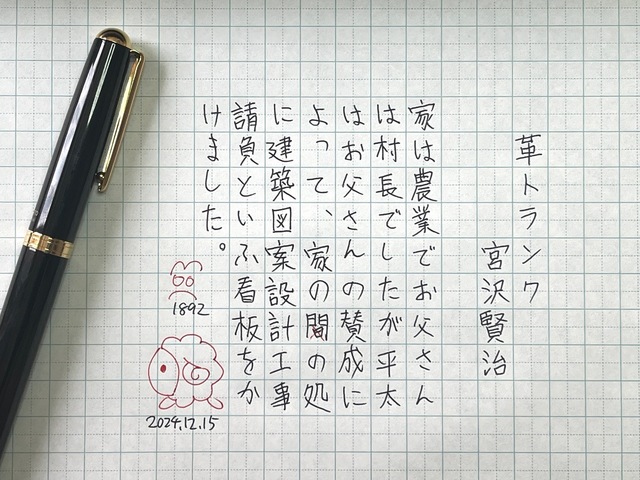 革トランク
宮沢賢治
家は農業でお父さん
は村長でしたが平太
はお父さんの賛成に
よって、家の間の処
に建築図案設計工事
請負といふ看板をか
けました。
1892
2024.12.15